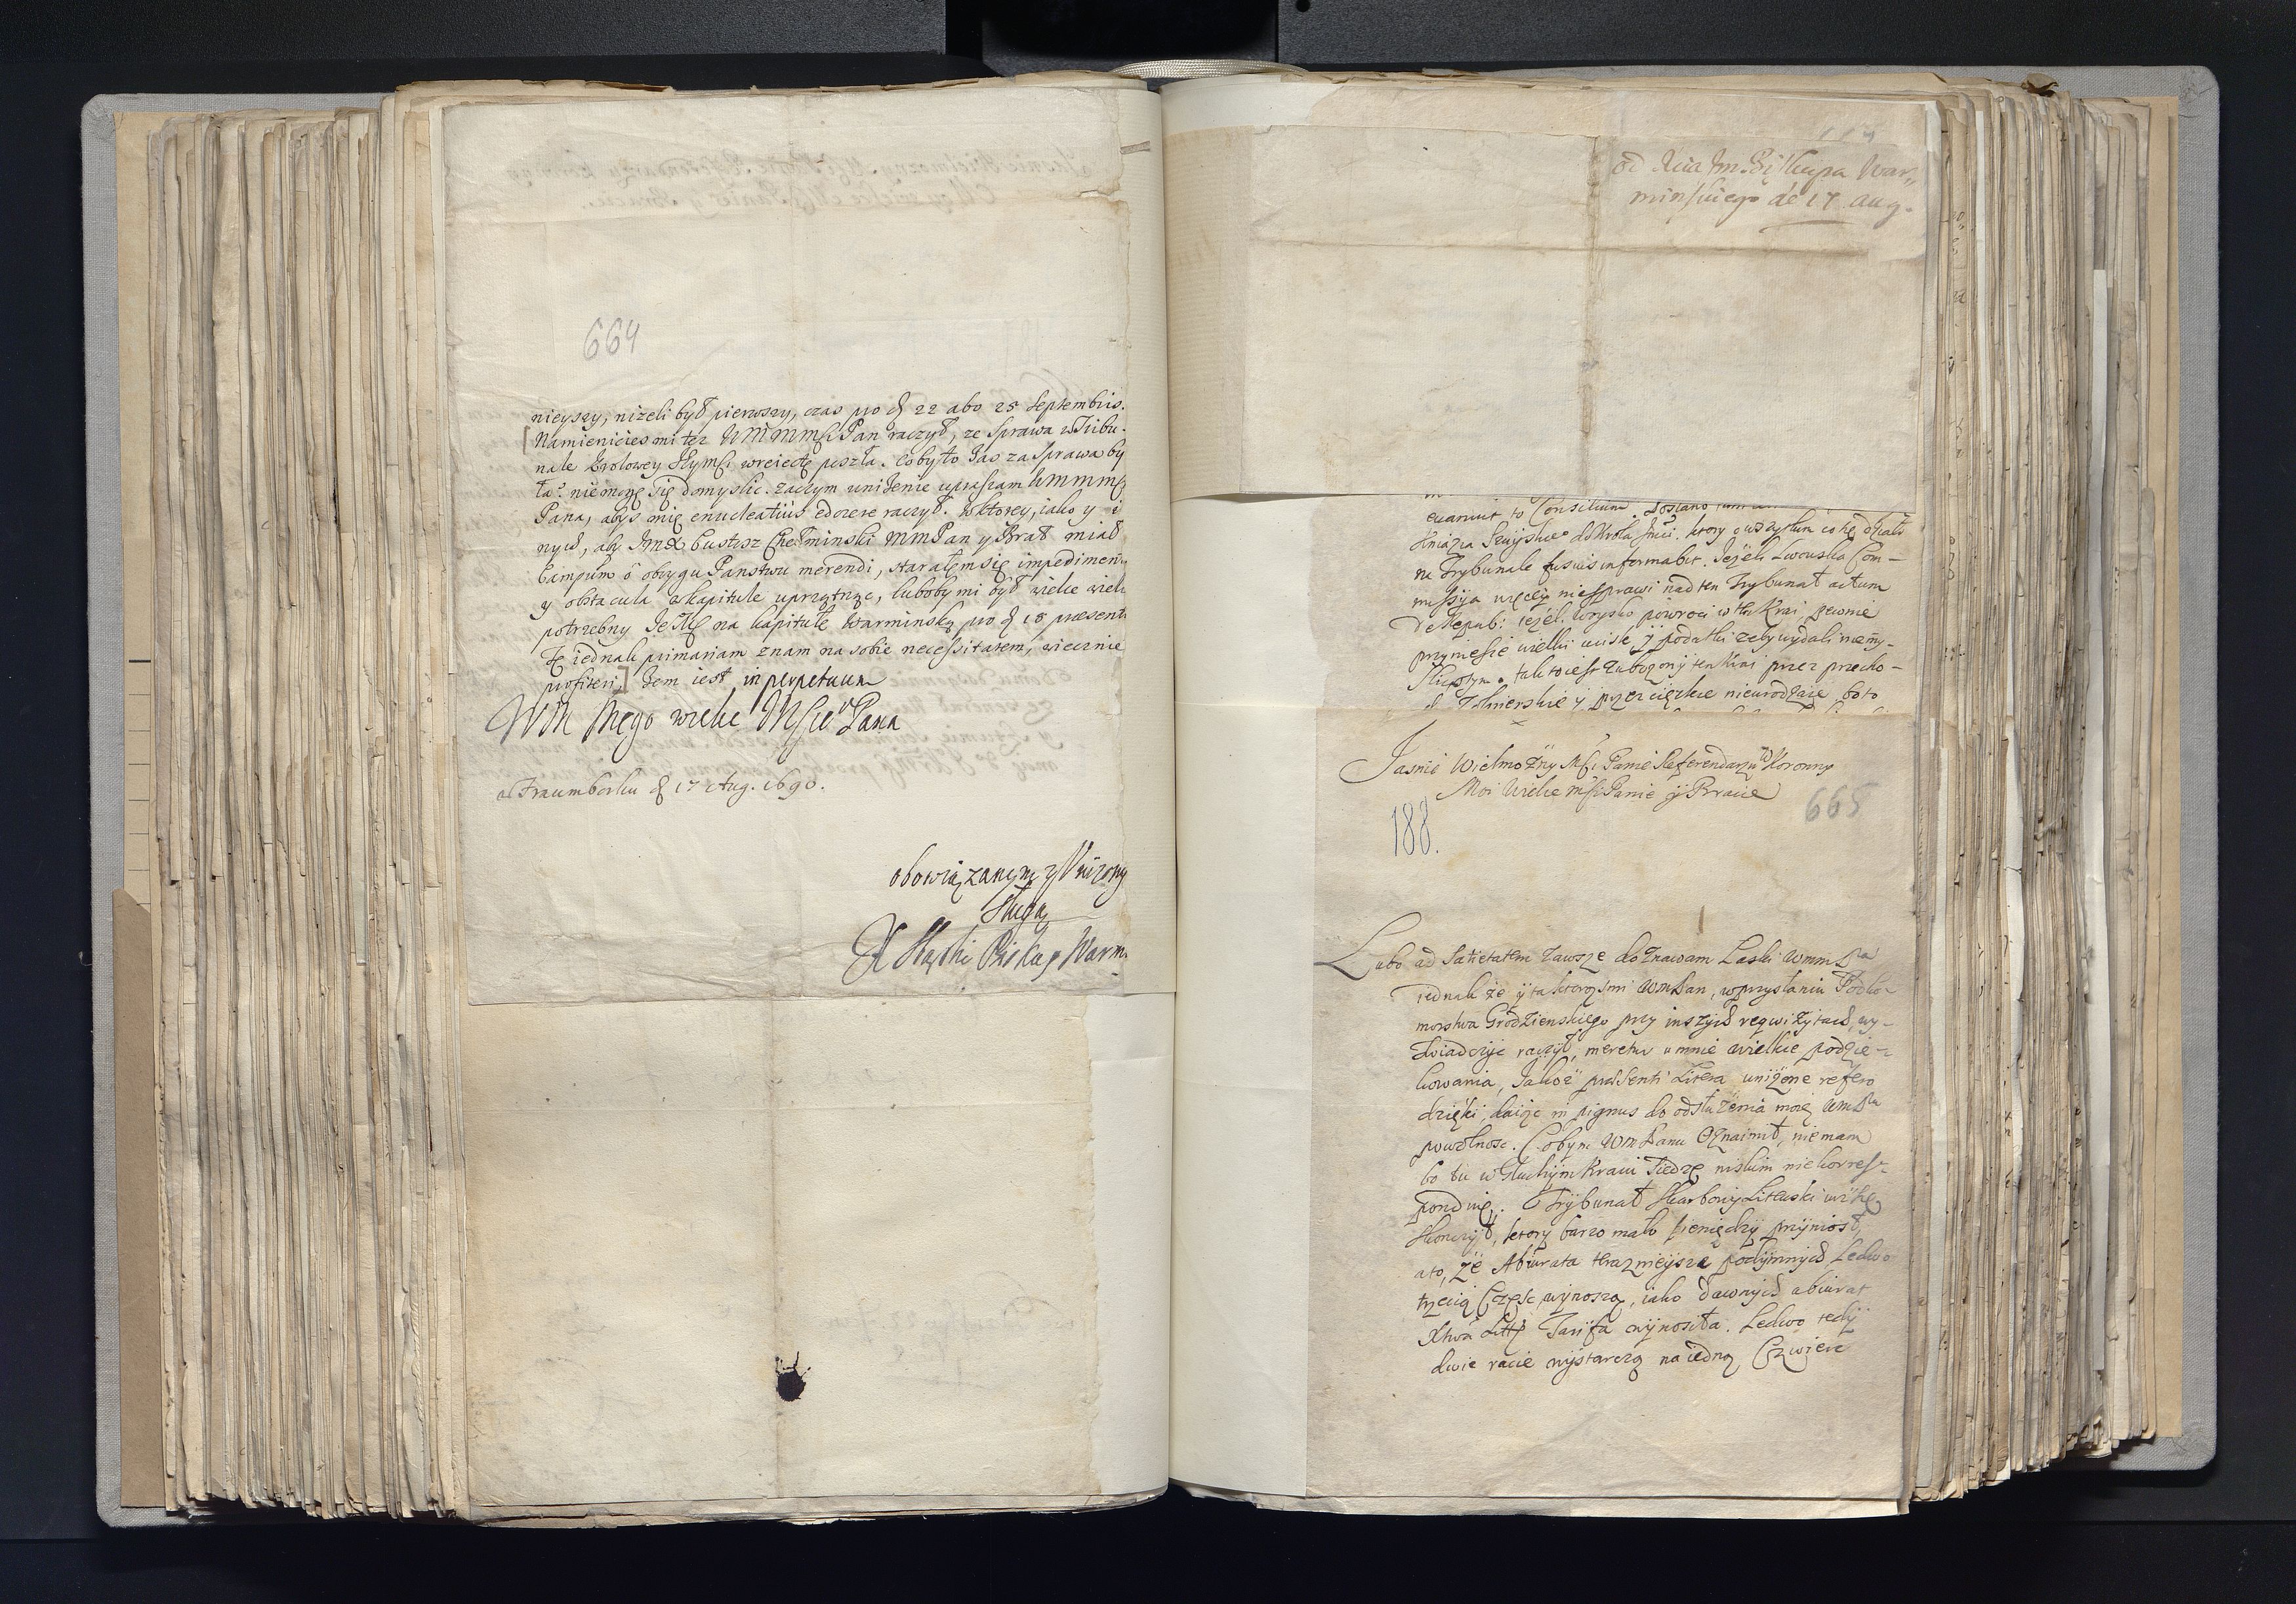 664
nieyszy, nizeli był pierwszy, czas pro d 22 abo 25 Septembris.
Namienicies mi tez WMMMsci Pan raczył, ze sprawa w Tribu-
nale Krolowey JeyMsci wreiectę poszła. Coby to Jas za sprawa by
ła? niemogę się domyslic. zaczym unizenie upraszam WMMMsci
Pana, abys mię enucleatius edocere raczył. Wktorey, iako y i
nych, aby Jmx Custosz Chełminski MMPan y Brat miał
Campum o obrygu Panstwu merendi, starałem się impedimen
y obstacula w kapitule uprzątnąc, luboby mi był wielce
potrzebny JeMsc na kapitułę Warminską pro d 18 praesent
Tę iednak primariam znam na sobie necessitatem, wiecznie
profiteri, żem iest in perpetuum
WM Mego wielce Mscie° Pana
w Fraumborku d 17 Aug. 1690.
obowiązanym y Unizony
Sługą
X Zbąski Biskup Warm.
od Xcia Jm. Biskupa War-
minskiego de 17 aug.
evanuit to Consilium. Posłano
Kniazia Szuyskie° do Krola Jmci. ktory o wszystkim co się działo
na Trybunale fusius informabit. Jeżeli Lwowska Com-
missyja więcey niesprawi nad ten Trybunał actum
de Repub: ieżeli woysko powroci w ten Kray, pewnie
przyniesie wielki ucisk, y podatki żeby wydali niemy-
slic o tym. tak to iest zubożony ten Kray przez przecho-
dy żołnierskie y przez ciężkie nieurodzaie, bo to
Jasnie Wielmożny Msci Panie Referendarzu Koronny
Moi Wielce Msci Panie y Bracie
665
188.
Lubo ad satietatem zawsze doznawam Łaski WMM Pa
iednak że y ta ktorąs mi WMPan, w przysłaniu Podko-
morstwa Grodzienskiego przy inszych reqwizytach, wy-
swiadczyc raczył, meretur u mnie wielkie podzię-
kowania, Jakoż praesenti Litera uniżone refero
dzięki, daiąc in pignus do odsłużenia moię WMPa
powolnosc. Cobym WMPanu Oznaimił, niemam
bo tu w Głuchym Kraiu Siedzę niskim nie kores-
ponduię. Trybunał Skarbowy Litewski iuż się
skonczył, ktory barzo mało pieniędzy przyniosł,
ato, że Abiurata teraznieysza podymnych Ledwo
trzecią Częsc wynoszą, iako dawnych abiurat
Xtwa Litt° Taryfa wynosiła. Ledwo tedy
dwie racie wystarczą na iedną Czwierc